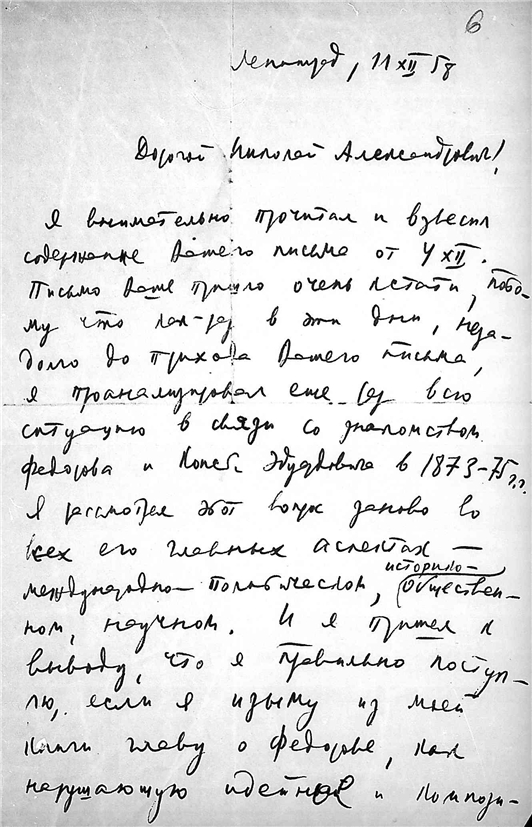 6
Ленинград, 11 XII 58
Дорогой Николай Александрович!
Я внимательно прочитал и взвесил
содержание Вашего письма от 4 XII.
Письмо Ваше пришло очень кстати, пото-
му что как-раз в эти дни, неза-
долго до прихода Вашего письма,
я проанализировал еще раз всю
ситуацию в связи со знакомством
Федорова и Конст. Эдуардовича в 1873-75 г.г.
Я рассмотрел этот вопрос заново во
всех его главных аспектах —
историко-
международно-политическом, обществен-
ном, научном. И я пришел к
выводу, что я правильно посту-
лю, если я изыму из моей
книги главу о Федорове, как
нарушающую идейное и компози-